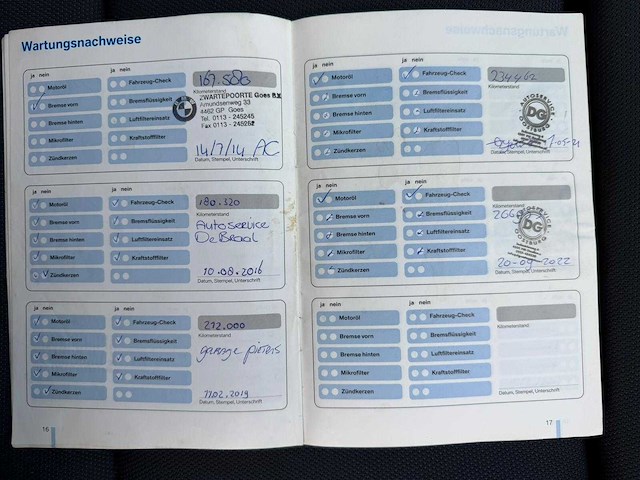 Wartungsnachweise
ja nein
ja nein
Motoröl
Fahrzeug-Check
Bremse vorn
Bremsflüssigkeit
Bremse hinten
Luftfiltereinsatz
Mikrofilter
Kraftstofffilter
Zündkerzen
167.586
Kilometerstand
ZWARTEPOORTE Goes B.V.
Amundsenweg 33
4462 GP Goes
Tel. 0113 - 245245
Fax 0113 -
14/7/14 AC
Datum, Stempel, Unterschrift
ja nein
ja nein
Motoröl
Fahrzeug-Check
Bremse vorn
Bremsflüssigkeit
Bremse hinten
Luftfiltereinsatz
Mikrofilter
Kraftstofffilter
Zündkerzen
180.320
Kilometerstand
Autoservice
De Braal
10.08.2016
Datum, Stempel, Unterschrift
ja nein
ja nein
Motoröl
Fahrzeug-Check
Bremse vorn
Bremsflüssigkeit
Bremse hinten
Luftfiltereinsatz
Mikrofilter
Kraftstofffilter
Zündkerzen
212.000
Kilometerstand
garage pieters
Datum, Stempel, Unterschrift
16
ja nein
ja nein
Motoröl
Fahrzeug-Check
Bremse vorn
Bremsflüssigkeit
Bremse hinten
Luftfiltereinsatz
Mikrofilter
Kraftstofffilter
Zündkerzen
234462
Kilometerstand
AUTOSERVICE
DG
OOSTBURG
Datum, Stempel, Unterschrift
ja nein
ja nein
Motoröl
Fahrzeug-Check
Bremse vorn
Bremsflüssigkeit
Bremse hinten
Luftfiltereinsatz
Mikrofilter
Kraftstofffilter
Zündkerzen
Kilometerstand
DG
OOSTBURG
20-09-2022
Datum, Stempel, Unterschrift
ja nein
ja nein
Motoröl
Fahrzeug-Check
Bremse vorn
Bremsflüssigkeit
Bremse hinten
Luftfiltereinsatz
Mikrofilter
Kraftstofffilter
Zündkerzen
Kilometerstand
Datum, Stempel, Unterschrift
17